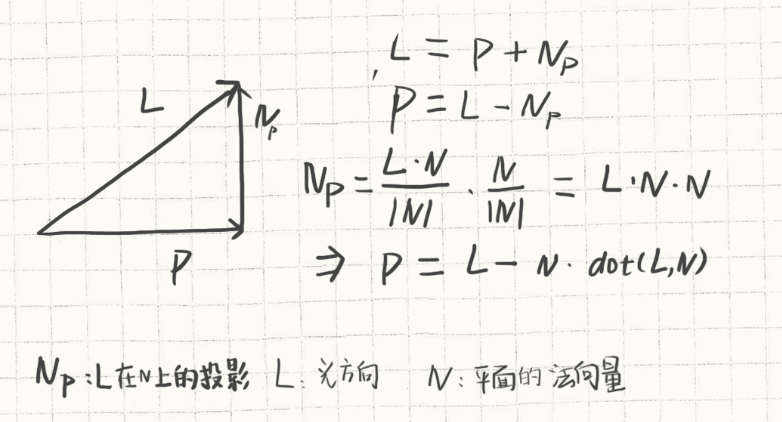 L = P + Np
P = L - Np
Np = L·N/|N| · N/|N| = L·N·N
⇒ P = L - N · dot(L,N)
L
Np
P
Np:L在N上的投影 L: 光方向 N: 平面的法向量